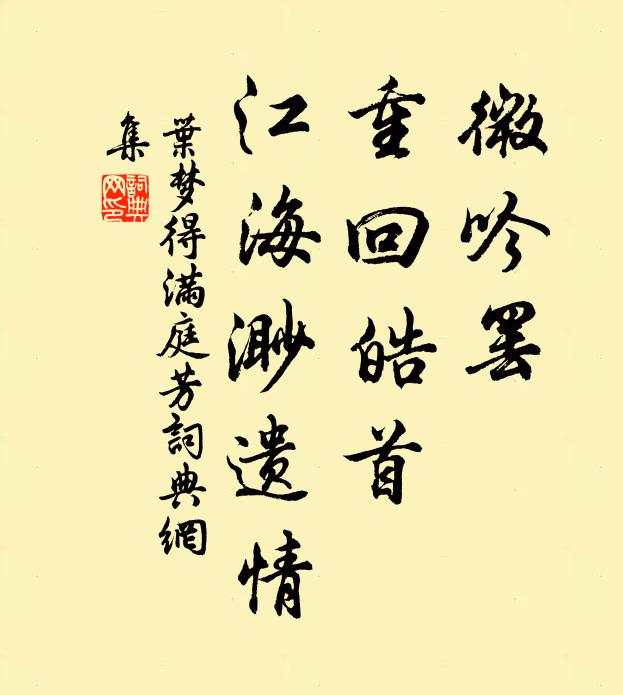 微吟罢
重回皓首
江海渺遗情
葉梦得满庭芳詞典網
集
詞典
网印